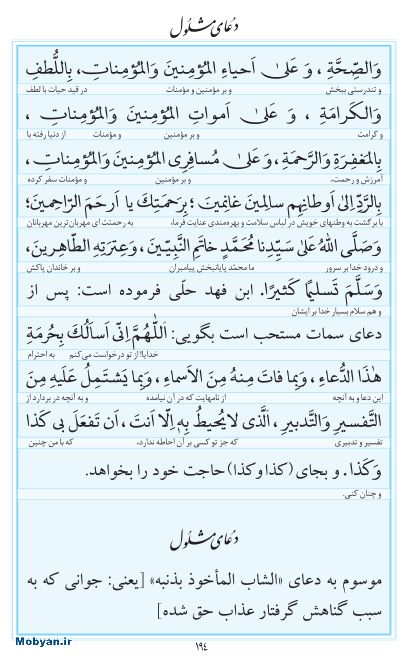 دعای مشلول
وَالصِّحَّةِ ، وَ عَلىٰ اَحیاءِ المُؤمِنینَ وَالمُؤمِناتِ، بِاللُّطفِ
و تندرستی ببخش و بر مؤمنین و مؤمنات در قید حیات با لطف
وَالكَرامَةِ ، وَ عَلىٰ اَمواتِ المُؤمِنینَ وَالمُؤمِناتِ ،
و کرامت و بر مؤمنین و مؤمنات از دنیا رفته با
بِالمَغفِرَةِ وَالرَّحمَةِ، وَ عَلىٰ مُسافِرِی المُؤمِنینَ وَالمُؤمِناتِ ،
آمرزش و رحمت، و بر مؤمنین و مؤمنات سفر کرده
بِالرَّدِّ اِلىٰ اَوطانِهِم سالِمینَ غانِمینَ ؛ بِرَحمَتِكَ یا اَرحَمَ الرّاحِمینَ؛
با برگشت به وطنهای خویش در لباس سلامت و بهره‌مندی عنایت فرما، به رحمتت ای مهربان‌ترین مهربانان
وَصَلَّى اللهُ عَلىٰ سَیِّدِنا مُحَمَّدٍ خاتَمِ النَّبِیّینَ، وَعِترَتِهِ الطّاهِرینَ،
و درود خدا بر سرور ما محمّد پایانبخش پیامبران و بر خاندان پاکش
وَسَلَّمَ تَسلیمًا كَثیرًا. ابن فهد حلّی فرموده است: پس از
و هم سلام بسیار خدا بر ایشان
دعای سمات مستحب است بگویی: اَللّٰهُمَّ اِنّی اَسأَلُكَ بِحُرمَةِ
خدایا! از تو درخواست می‌کنم به احترام
هٰذَا الدُّعاءِ، وَبِما فاتَ مِنهُ مِنَ الاَسماءِ، وَبِما یَشتَمِلُ عَلَیهِ مِنَ
این دعا و به آنچه از نامهایت که در آن نیامده و به آنچه در بردارد از
التَّفسیرِ وَالتَّدبیرِ ، اَلَّذی لایُحیطُ بِهٖ اِلّا اَنتَ، اَن تَفعَلَ بی كَذا
تفسیر و تدبیری که جز تو کسی بر آن احاطه ندارد، که با من چنین
وَكَذا. و بجای (کذا و کذا) حاجت خود را بخواهد.
و چنان کنی.
دعای مشلول
موسوم به دعای «الشاب المأخوذ بذنبه» [یعنی: جوانی که به
سبب گناهش گرفتار عذاب حق شده]
Mobyan.ir
۱۹٤